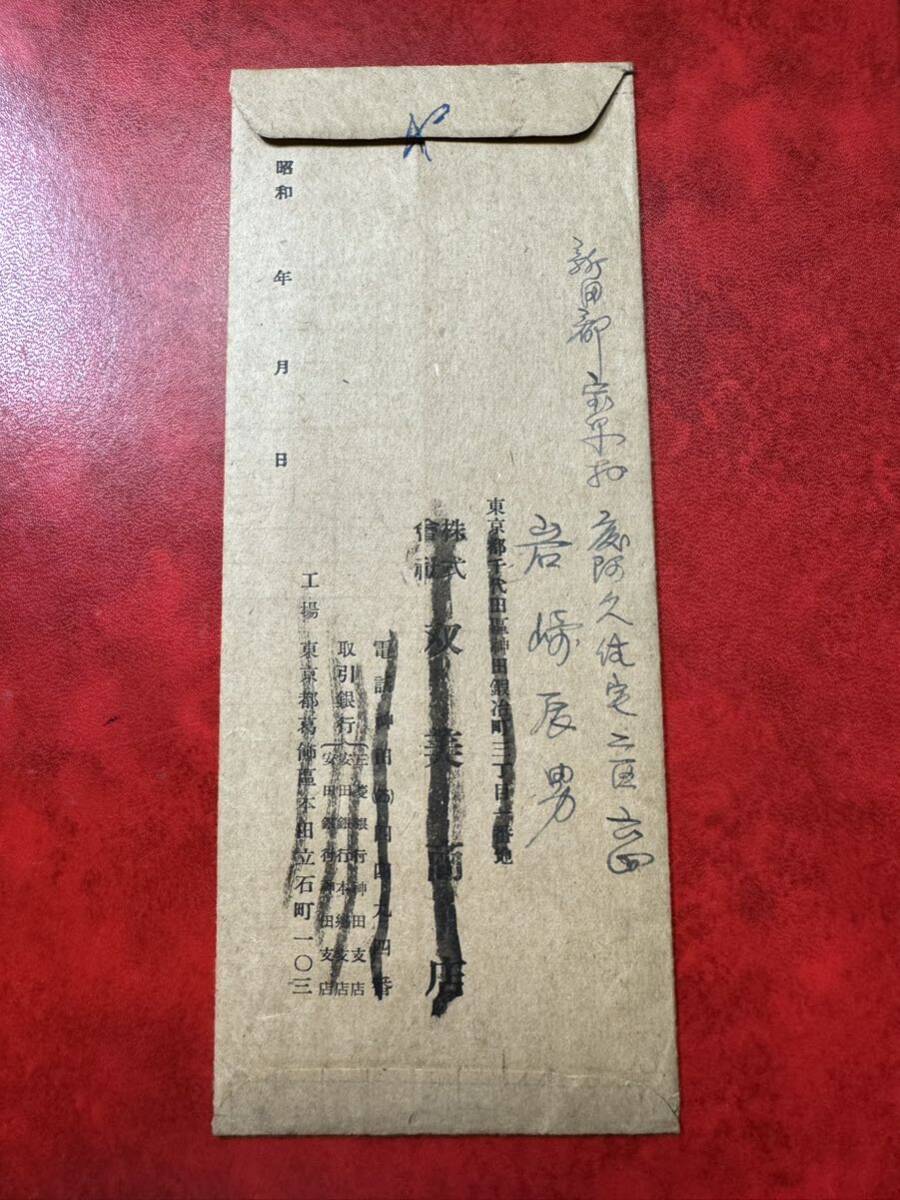 新田郡宝泉村
岩崎辰男
東京都千代田區神田鍛冶町三丁目一番地
株式會社 双美商店
電話神田(25)四四九四番
取引銀行
三菱銀行神田支店
安田銀行本郷支店
安田銀行神田支店
工場 東京都葛飾區本田立石町一〇三
昭和 年 月 日